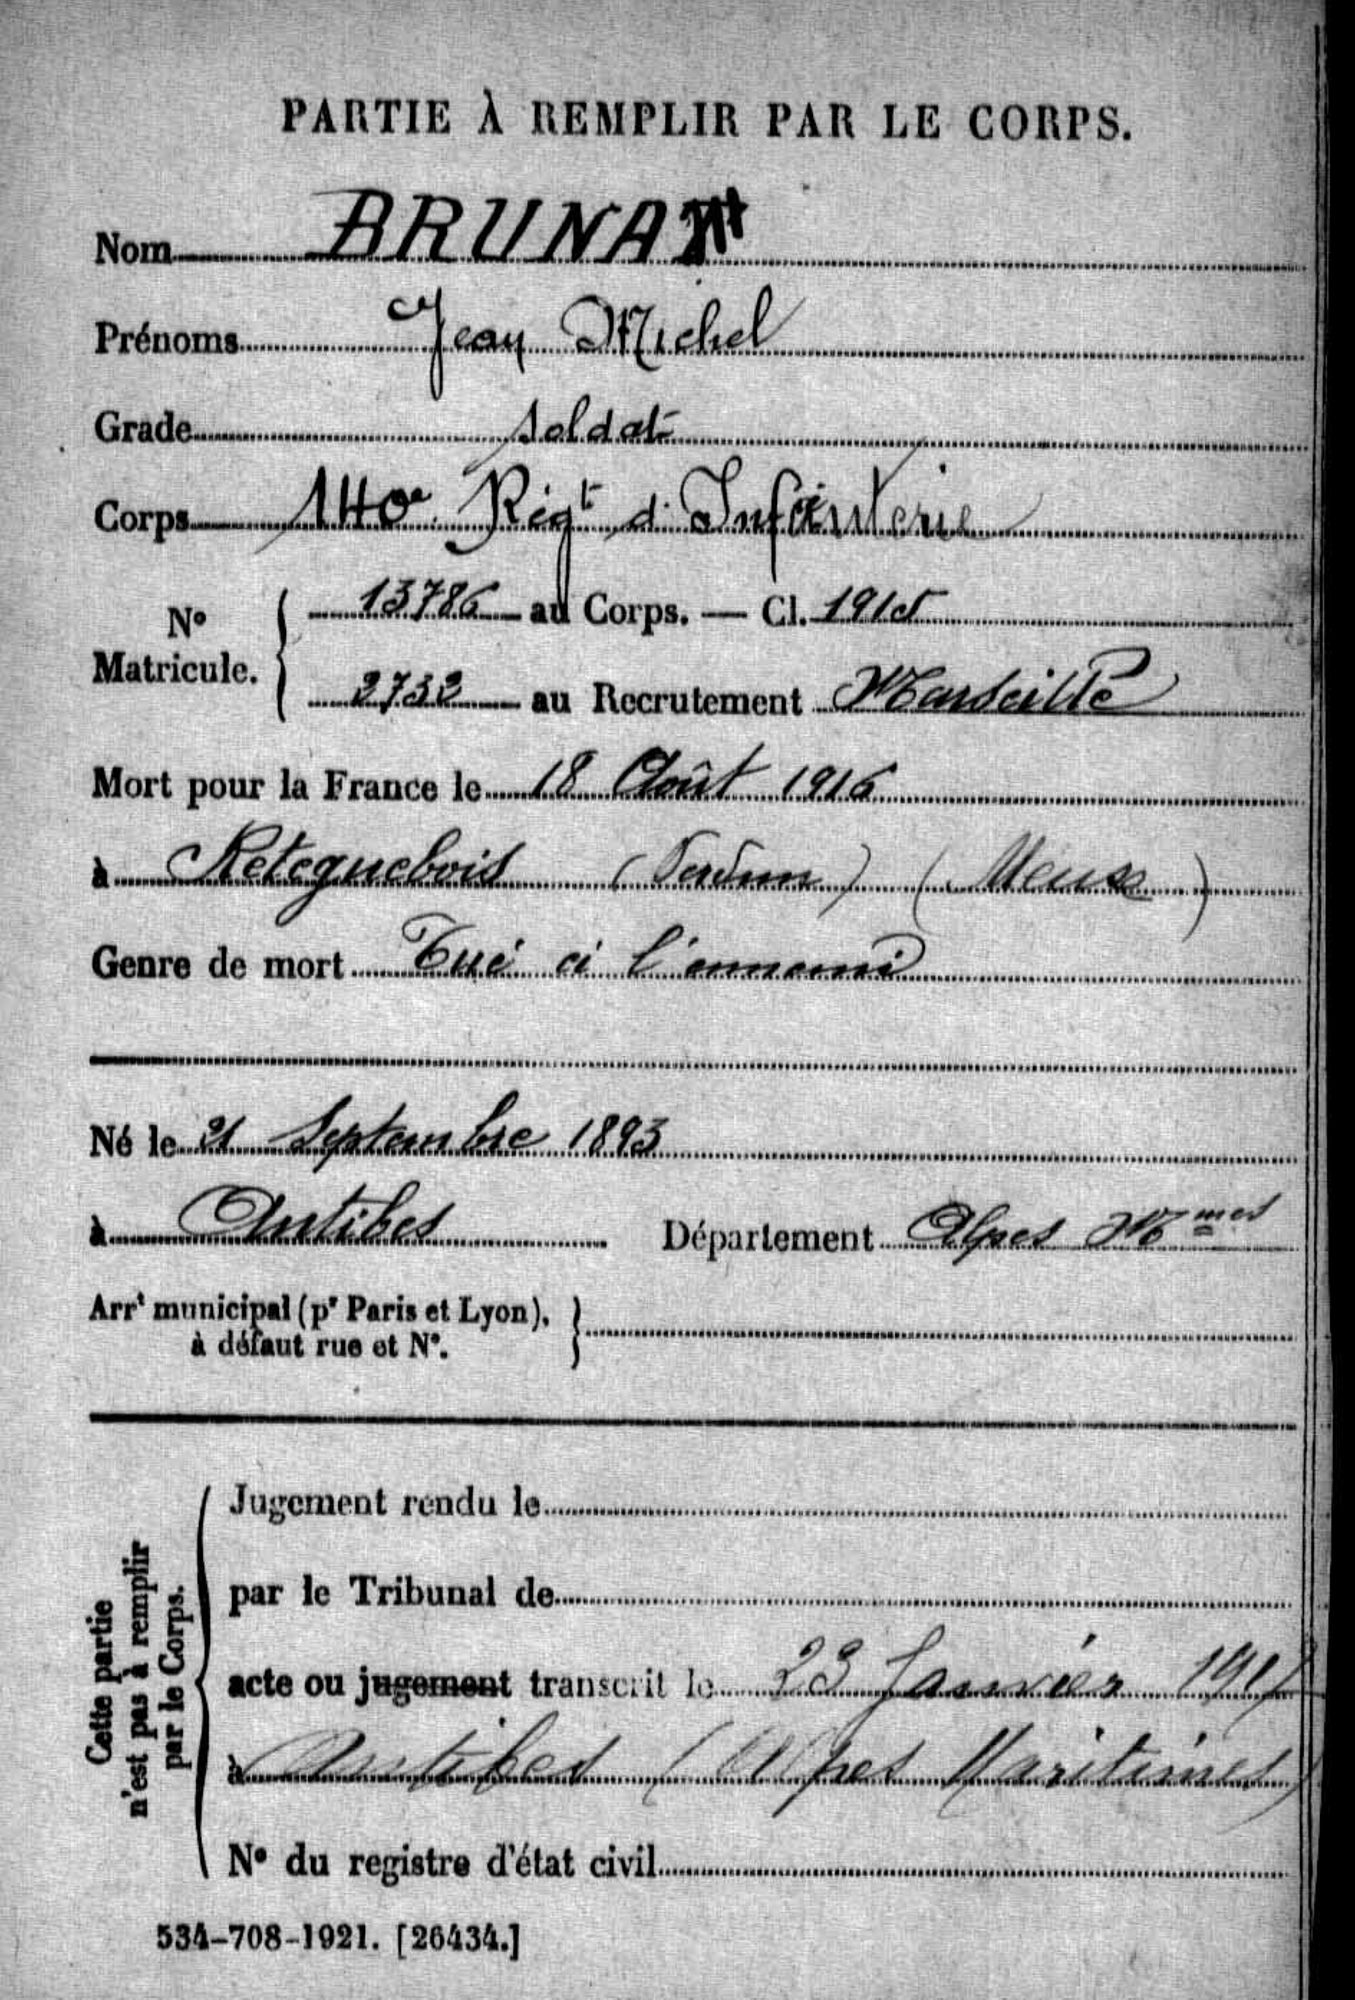 PARTIE À REMPLIR PAR LE CORPS.
Nom BRUNA
Prénoms Jean Michel
Grade soldat
Corps 140e Régt d'Infanterie
No Matricule. 13786 au Corps. — Cl. 1915
2732 au Recrutement Marseille
Mort pour la France le 18 Août 1916
à Reteguebois (Verdun) (Meuse)
Genre de mort Tué à l'ennemi
Né le 21 Septembre 1893
à Antibes Département Alpes Mmes
Arrt municipal (pr Paris et Lyon),
à défaut rue et No.
Cette partie
n'est pas à remplir
par le Corps.
Jugement rendu le
par le Tribunal de
acte ou jugement transcrit le 23 Janvier 1917
à Antibes (Alpes Maritimes)
No du registre d'état civil
534-708-1921. [26434.]